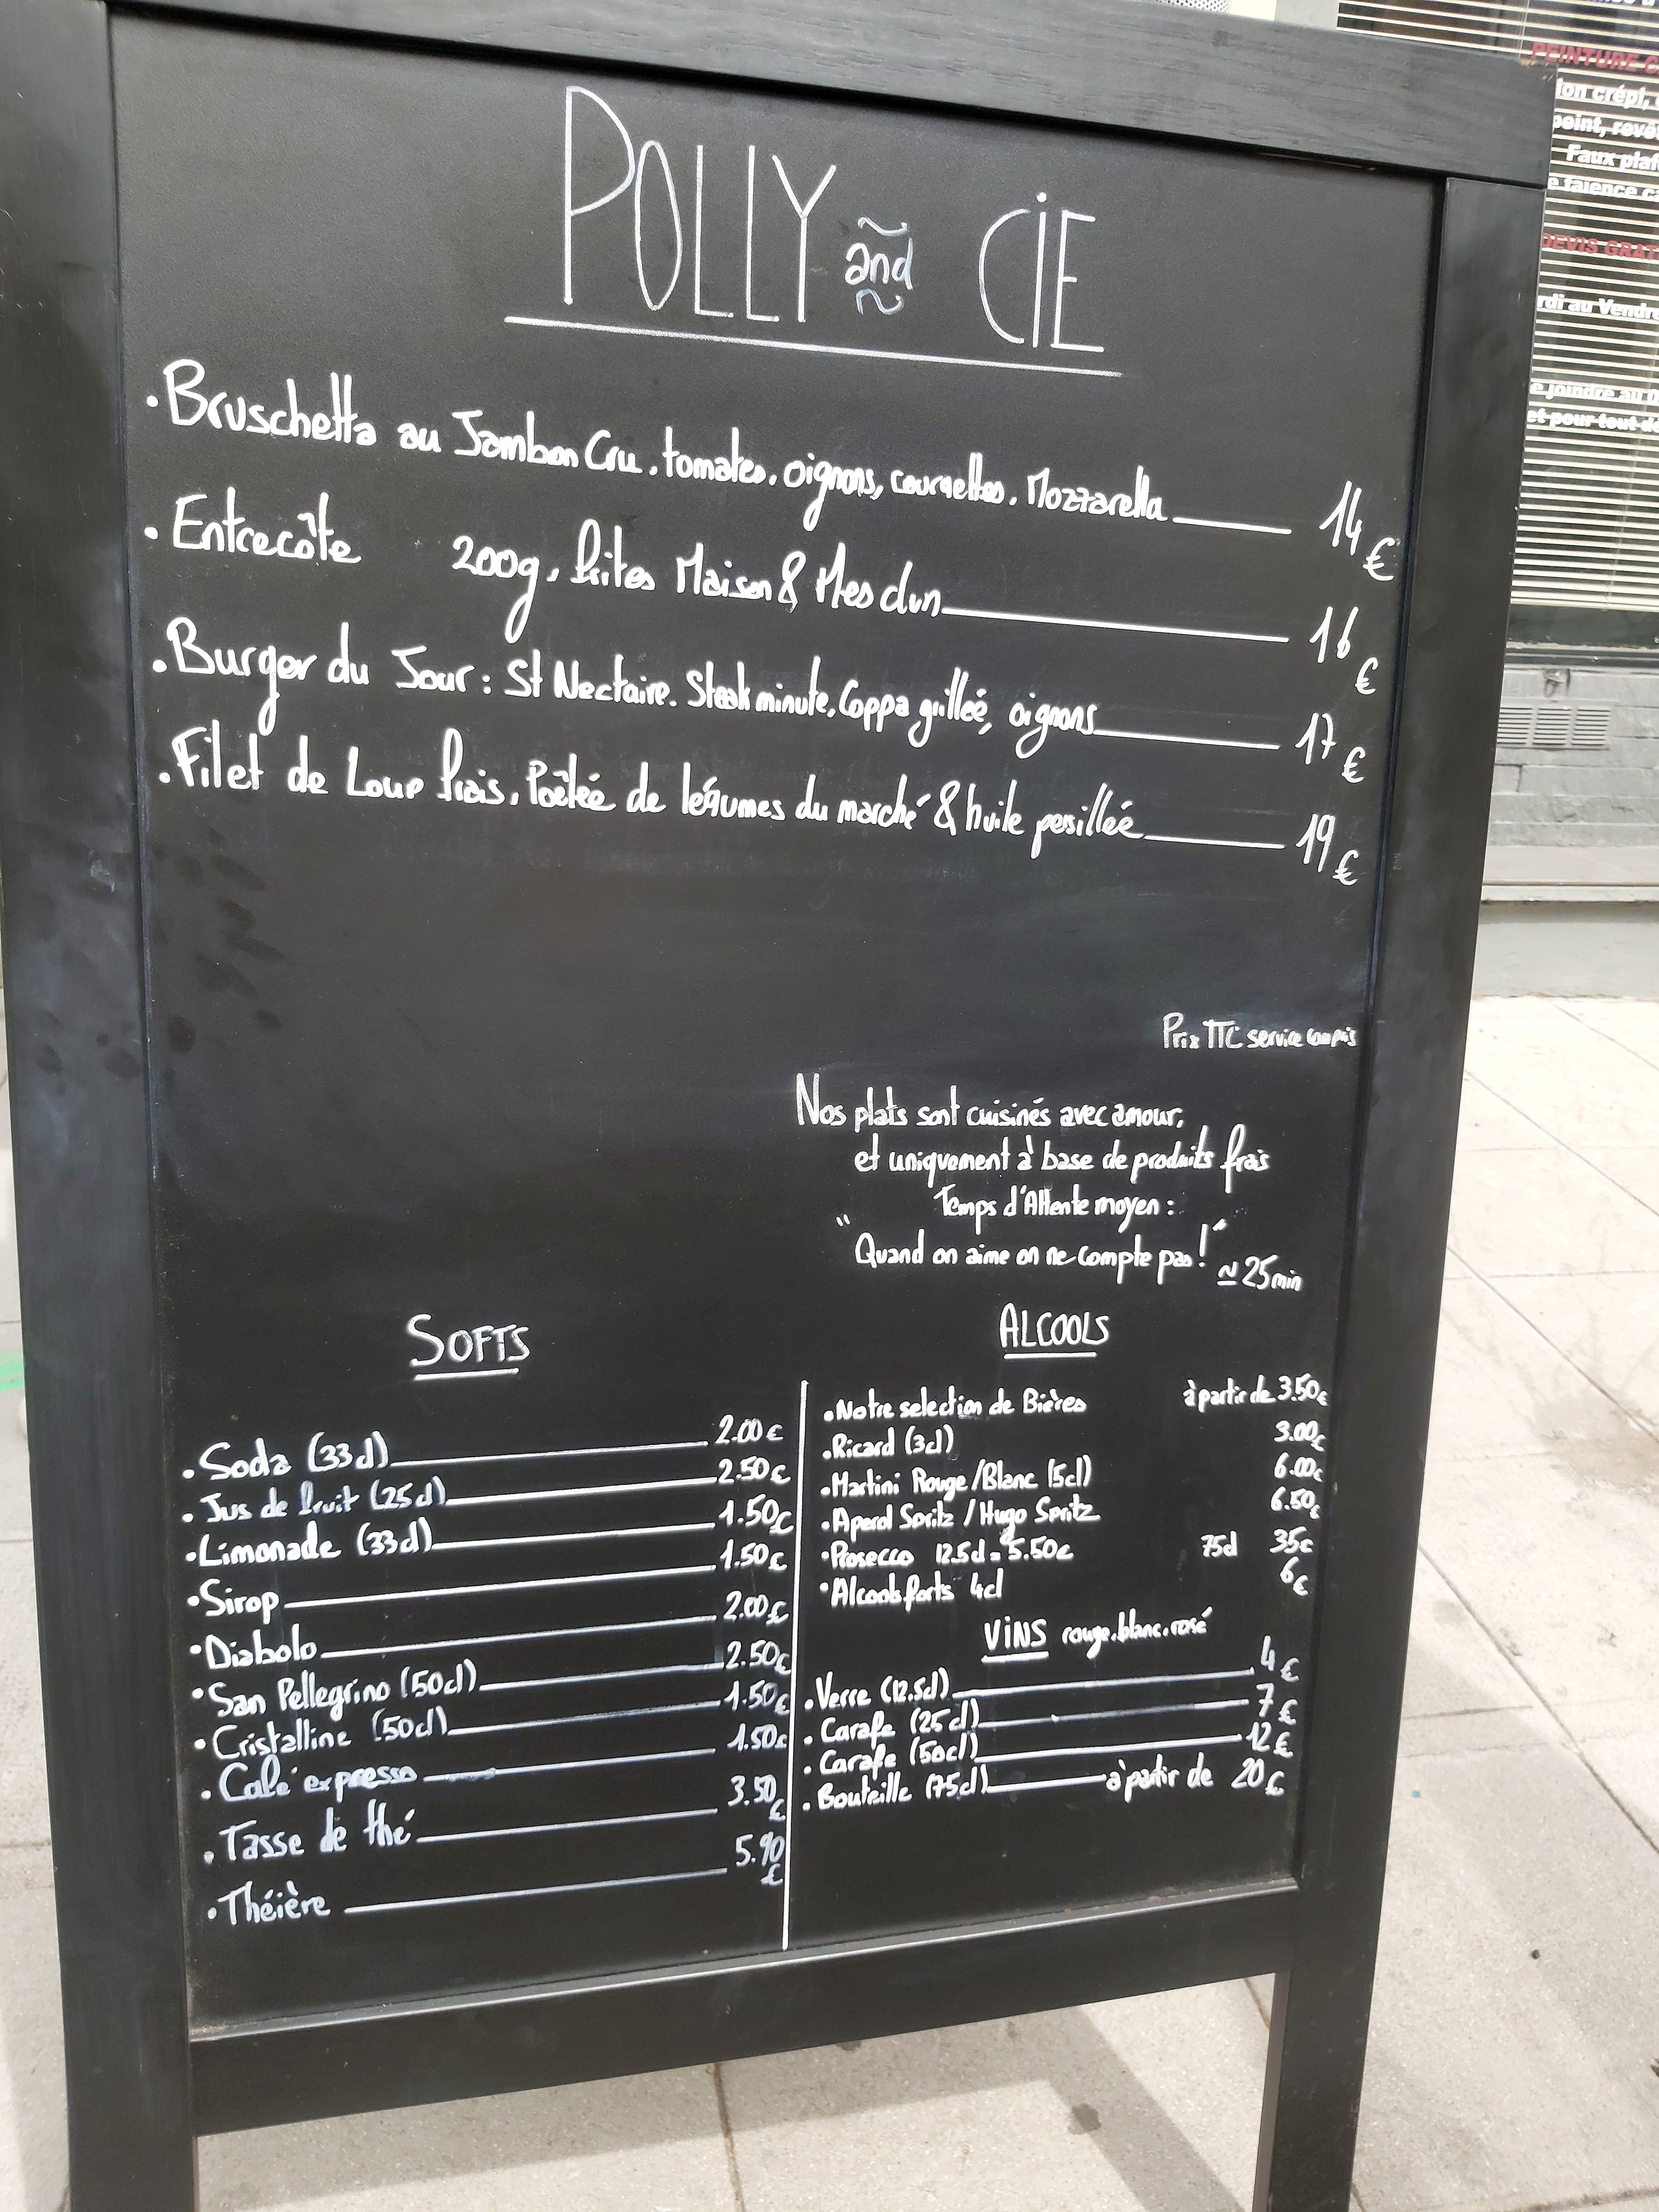 POLLY and CiE
. Bruschetta au Jambon Cru, tomates, oignons, courgettes, Mozzarella 14€
. Entrecôte 200g, frites Maison & Mesclun 16€
. Burger du Jour : St Nectaire. Steak minute, Coppa grillée, oignons 17€
. Filet de Loup frais, Poêlée de légumes du marché & huile persillée 19€
Prix TTC service compris
Nos plats sont cuisinés avec amour,
et uniquement à base de produits frais
Temps d'Attente moyen :
"Quand on aime on ne compte pas !" ~ 25min
SOFTS
. Soda (33cl) 2.00€
. Jus de fruit (25cl) 2.50€
. Limonade (33cl) 1.50€
. Sirop 1.50€
. Diabolo 2.00€
. San Pellegrino (50cl) 2.50€
. Cristalline (50cl) 1.50€
. Café expresso 1.50€
. Tasse de thé 3.50€
. Théière 5.90€
ALCOOLS
. Notre selection de Bières à partir de 3.50€
. Ricard (3cl) 3.00€
. Martini Rouge/Blanc (5cl) 6.00€
. Aperol Spritz / Hugo Spritz 6.50€
. Prosecco 12.5cl = 5.50€ 75cl 35€
. Alcools forts 4cl 6€
ViNS rouge.blanc.rosé
. Verre (12.5cl) 4€
. Carafe (25cl) 7€
. Carafe (50cl) 12€
. Bouteille (75cl) à partir de 20€
PEINTURE
crépi,
point,
Faux
faience
DEVIS
au
joindre au
et pour tout